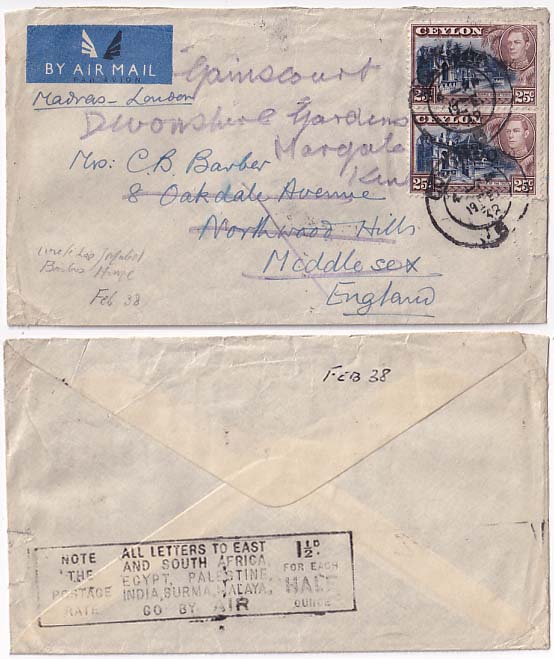 BY AIR MAIL
PAR AVION
Madras - London
CEYLON
25c 25c
CEYLON
25c 25c
Gainscourt
Devonshire Gardens
Margate
Kent
Mrs: C.B. Barber
8 Oakdale Avenue
Northwood Hills
Middlesex
England
Feb 38
FEB 38
NOTE
THE
POSTAGE
RATE
ALL LETTERS TO EAST
AND SOUTH AFRICA,
EGYPT, PALESTINE,
INDIA, BURMA, MALAYA,
GO BY AIR
1½D.
FOR EACH
HALF
OUNCE